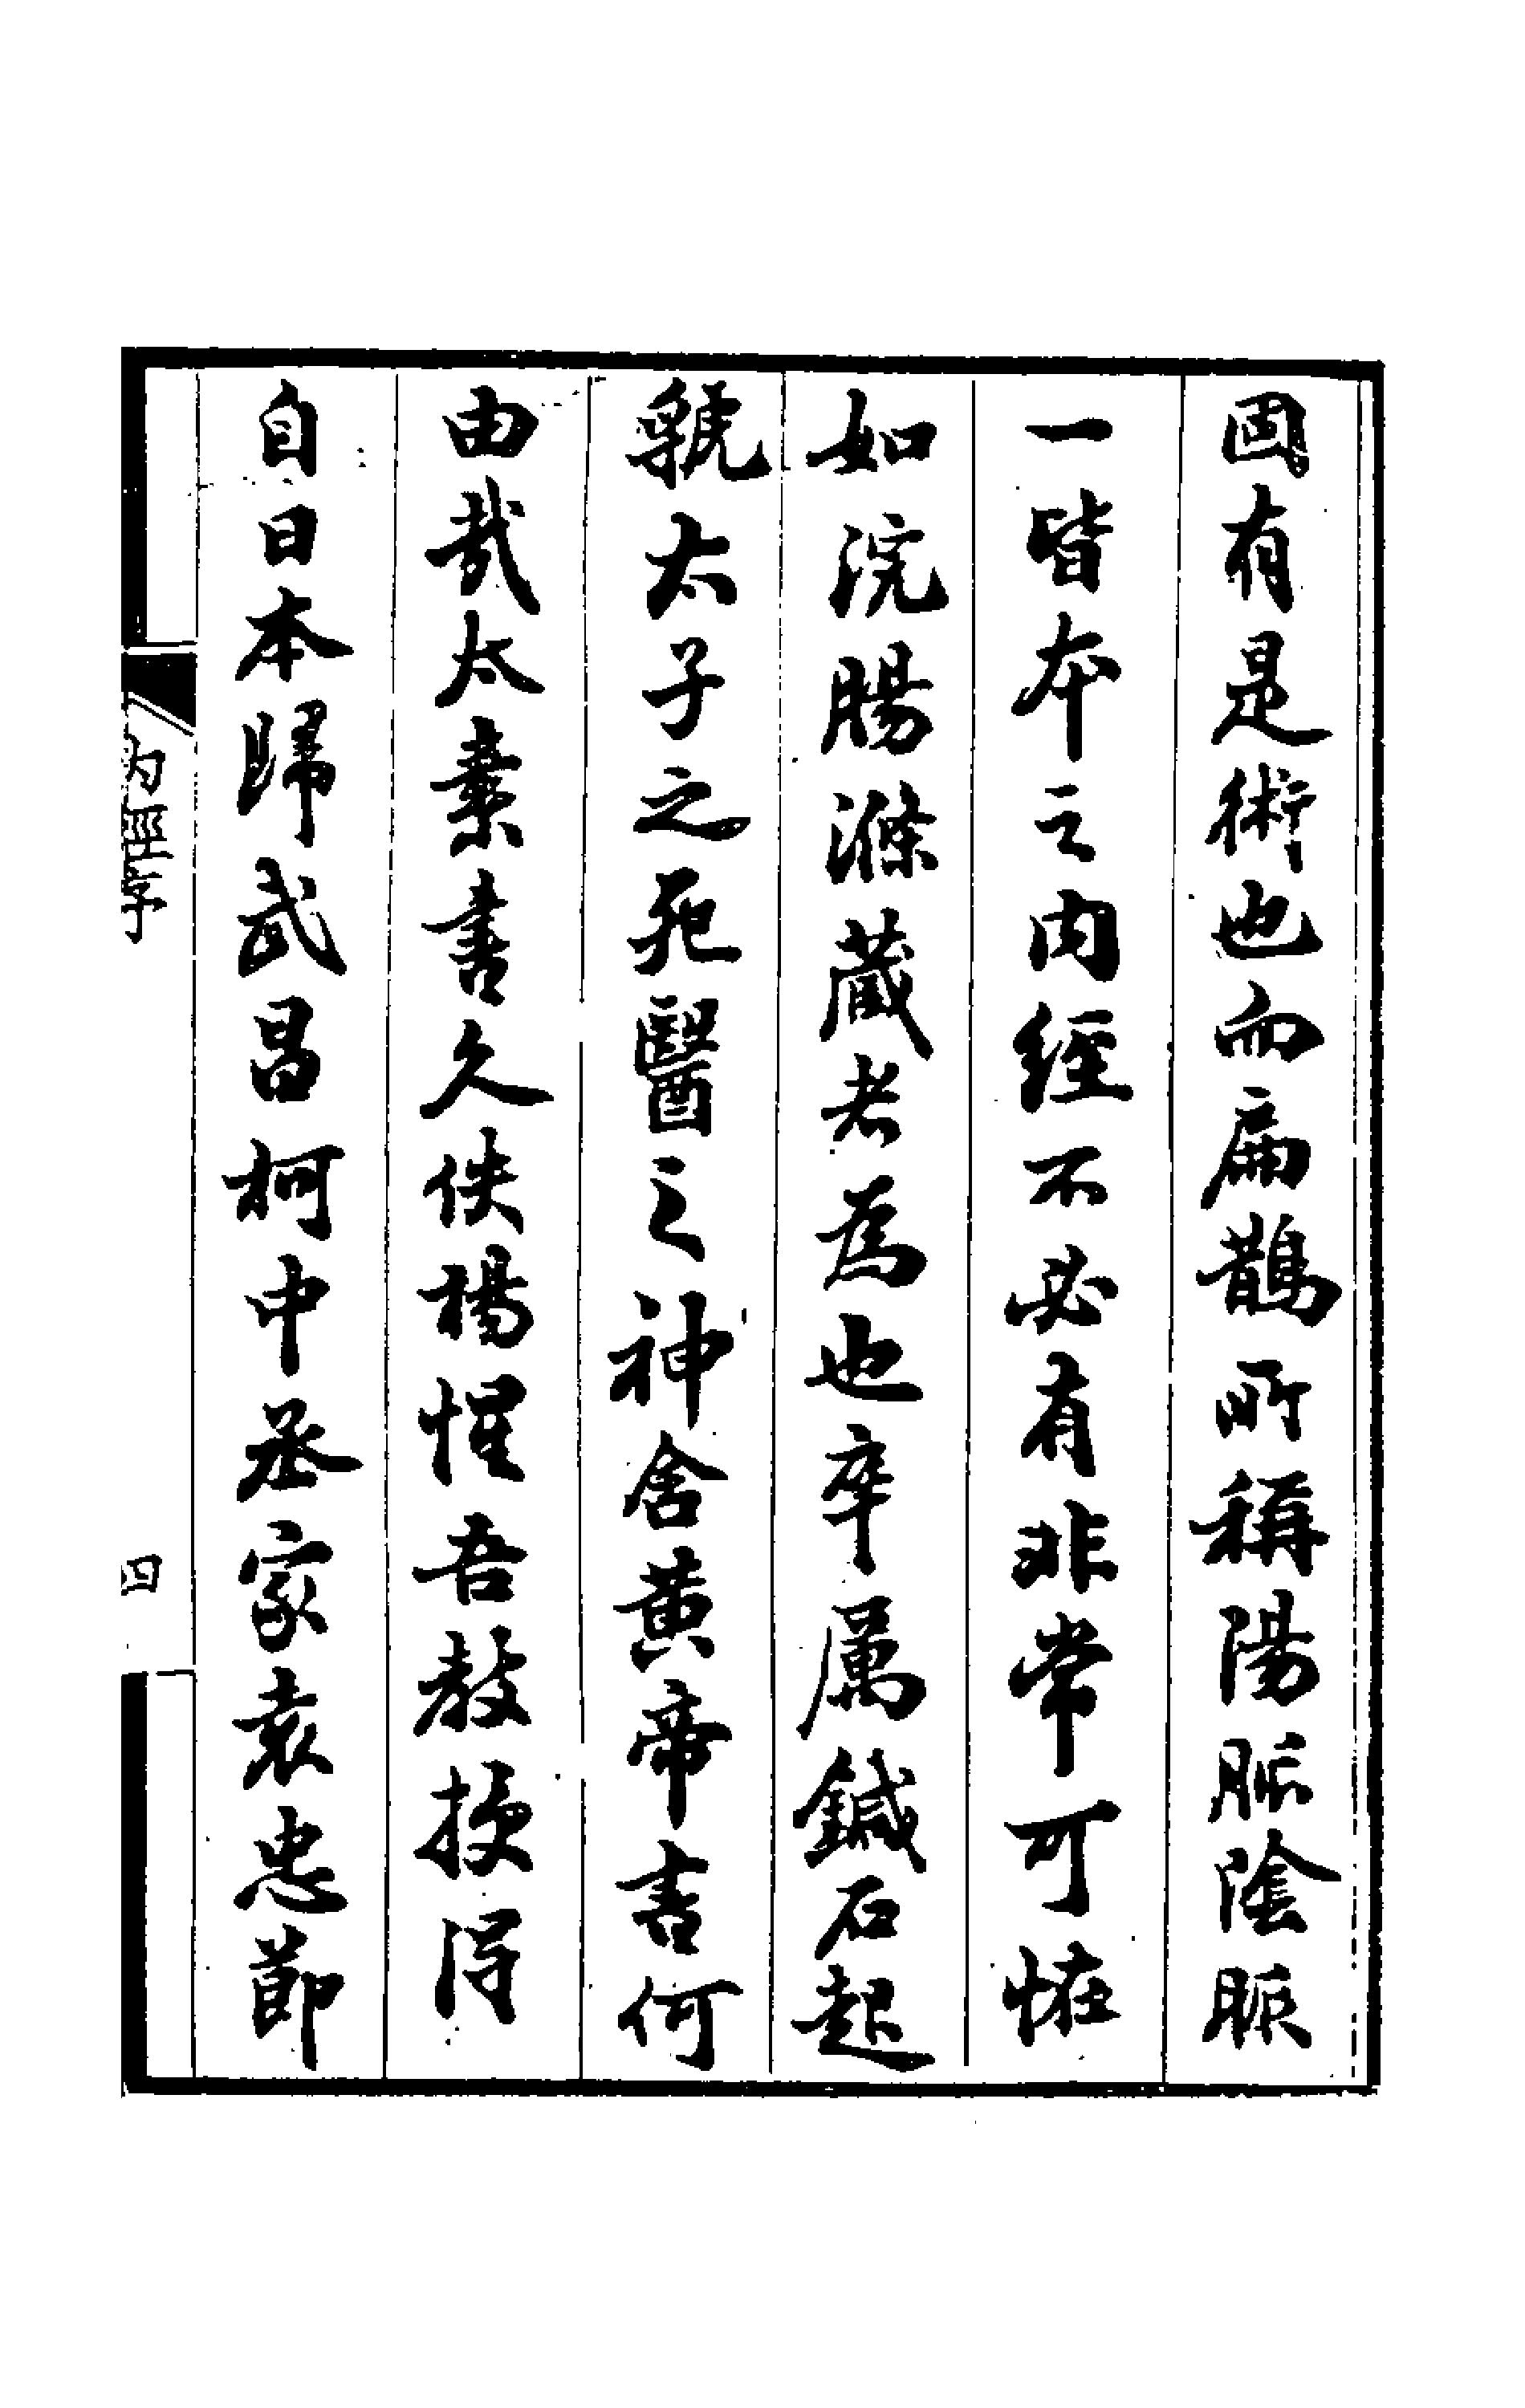 固有是術也而扁鵲所稱陽脈陰脈
一皆本之內經不必有非常可怪
如浣腸滌藏者為也卒厲鍼石起
虢太子之死醫之神舍黃帝書何
由哉太素書久佚楊惺吾教授得
自日本歸武昌柯中丞家袁忠節
內經序
四